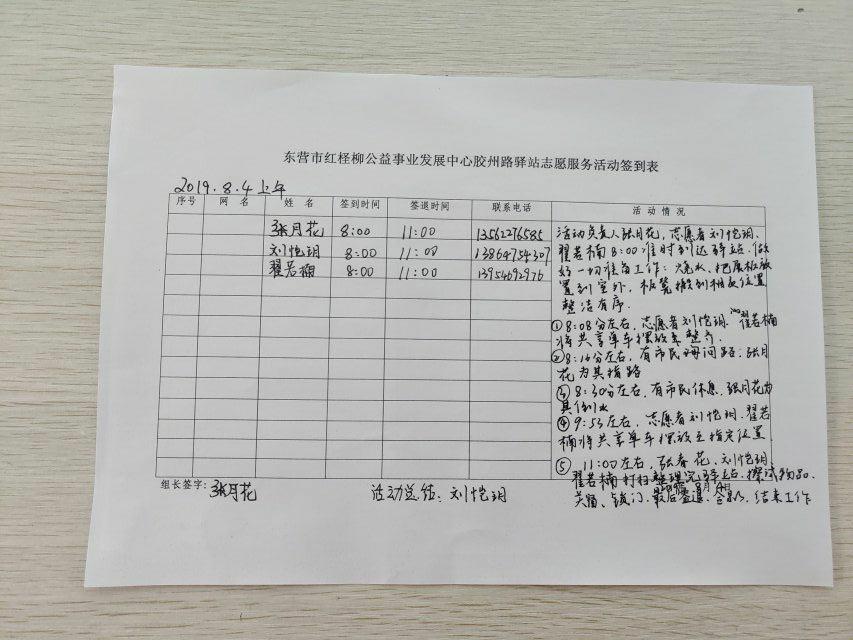 东营市红柽柳公益事业发展中心胶州路驿站志愿服务活动签到表
2019.8.4上午
序号 网 名 姓 名 签到时间 签退时间 联系电话 活 动 情 况
张月花 8:00 11:00 13562276585
刘恺玥 8:00 11:00 13864754307
翟若楠 8:00 11:00 13954692976
活动负责人张月花,志愿者刘恺玥、
翟若楠8:00准时到达驿站.做
好一切准备工作:烧水、把展板放
置到室外,板凳搬到相应位置
整洁有序.
①8:08分左右,志愿者刘恺玥、翟若楠
将共享单车摆放整齐.
②8:16分左右,有市民询问路,张月
花为其指路
③8:30分左右,有市民休息,张月花为
其倒水
④9:53左右,志愿者刘恺玥、翟若
楠将共享单车摆放至指定位置
⑤ 11:00左右,张春花、刘恺玥
翟若楠打扫整理完驿站、擦拭物品、
关窗、锁门、最后签退、合影、结束工作
组长签字:张月花 活动总结:刘恺玥